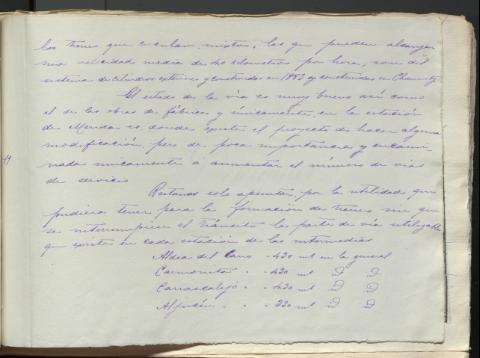 los trenes que circulan mixtos, las que pueden alcanzar
una velocidad media de 40 kilometros por hora, son del
sistema de cilindros exteriores y construidas en 1883 y construidas en Chemnitz
El estado de la via es muy bueno así como
el de las obras de fábrica y únicamente en la estación
de Merida es donde existe el proyecto de hacer alguna
modificación pero de poca importancia y encami-
nadas unicamente á aumentar el número de vias
de servicio
Restanos solo apuntar por la utilidad que
pudiera tener para la formación de trenes sin que
se interrumpiese el tránsito la parte de vía utilizable
que existe en cada estación de las intermedias
Aldea del Cano - 430 mt en la general
Carmonita - 430 mt D D
Carrascalejo - 430 mt D D
Aljucén - 330 mt D D